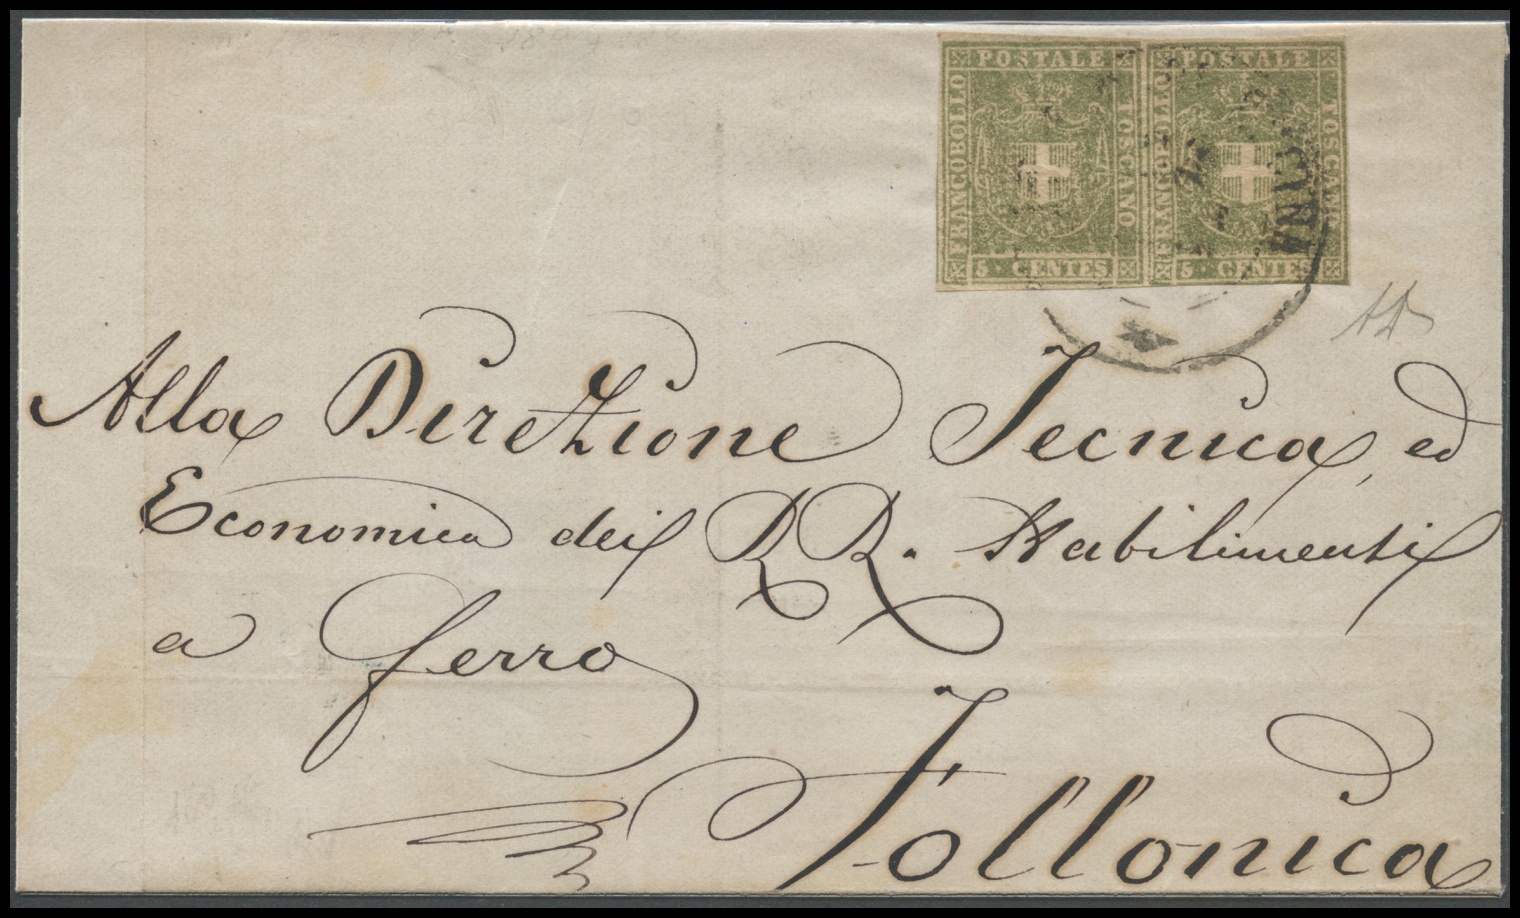 POSTALE POSTALE
FRANCOBOLLO TOSCANO FRANCOBOLLO TOSCANO
5 CENTES 5 CENTES
Alla Direzione Tecnica, ed
Economica dei RR. Stabilimenti
a ferro
Follonica